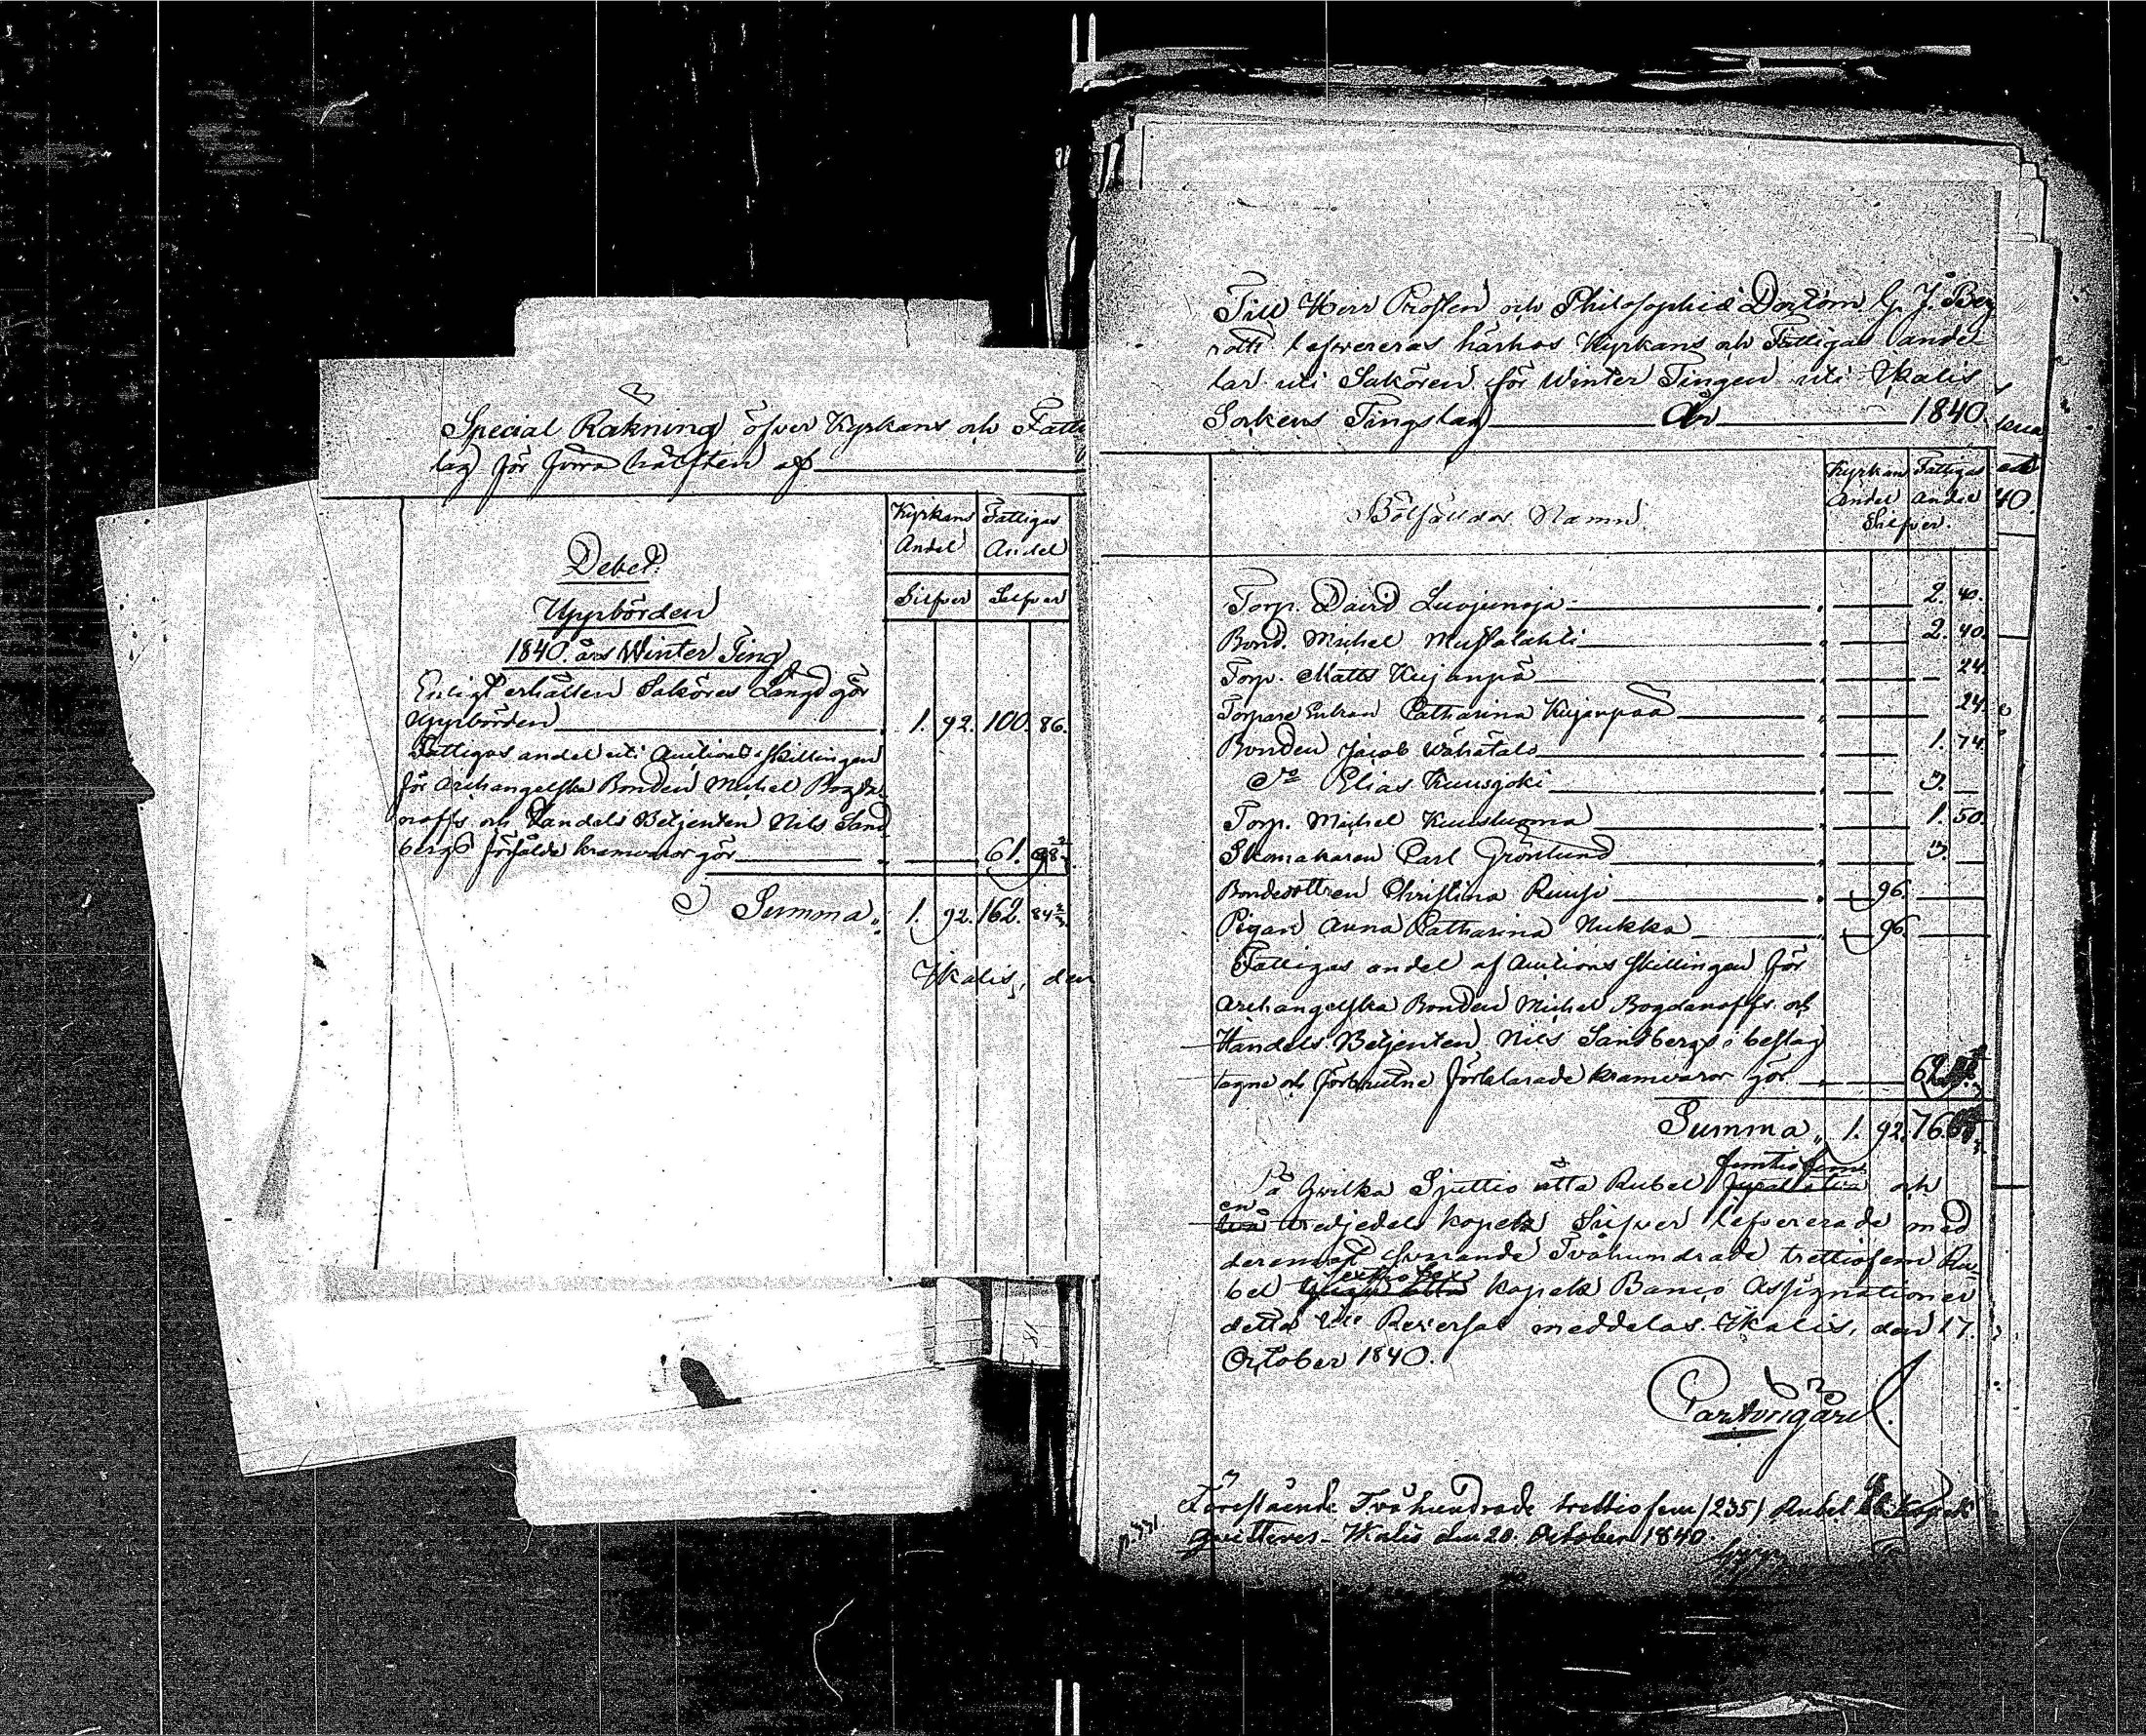 Special Räkning öfver Kyrkans och Fatti
lag för förra hälften af
Kyrkans Fattigas
Andel Andel
Silfver Silfver
Debet.
Uppbörden
1840 års Winter Ting
Enligt erhållen Saköres Längd gör
Uppbörden 1. 92. 100. 86.
Fattigas andel uti Auctions Skillingen
för Archangelska Bonden Michel Bogda
noffs och Handels Betjenten Nils Sand
bergs försålde kramvaror gör 61.
Summa 1. 92. 162. 84 2/3
Ikalis, den
Till Herr Prosten och Philosophiæ Doctorn G. J.
lefvereras härhos Kyrkans och Fattigas ande
lar uti Sakören för Winter Tingen uti Ikalis
Sokens Tingslag År 1840.
Bötfälldas Namn
Kyrkans Fattigas
Andel Andel
Silfver.
Torp. David Luojunoja 2. 40.
Bond. Michel Mustalahti 2. 40.
Torp. Matts Kujanpä 24.
Torpare Enkan Catharina Kujanpää 24.
Bonden Jacob Wähätalo 1. 74.
Do Elias Kuusjoki 3.
Torp. Michel Kuusluoma 1. 50.
Skomakaren Carl Grönlund 3.
Bondedottren Christina Ruusi 96.
Pigan Anna Catharina Nukka 96.
Fattigas andel af Auctions Skillingen för
Archangelska Bonden Michel Bogdanoffs och
Handels Betjenten Nils Sandbergs i beslag
tagne och förbrutne förklarade kramvaror gör 62.
Summa 1. 92. 76.
femtiofem
På hvilka Sjuttio åtta Rubel och
en
två tredjedels kopek Silfver lefvererade med
deremot svarande Tvåhundrade trettiofem Ru-
sextiosex
bel kopek Banco Assignationer
detta till Reversal meddelas. Ikalis, den 17.
October 1840.
Förestående Tvåhundrade trettiofem (235) Rubel 66 Kopek
quitteres. Ikalis den 20. October 1840.